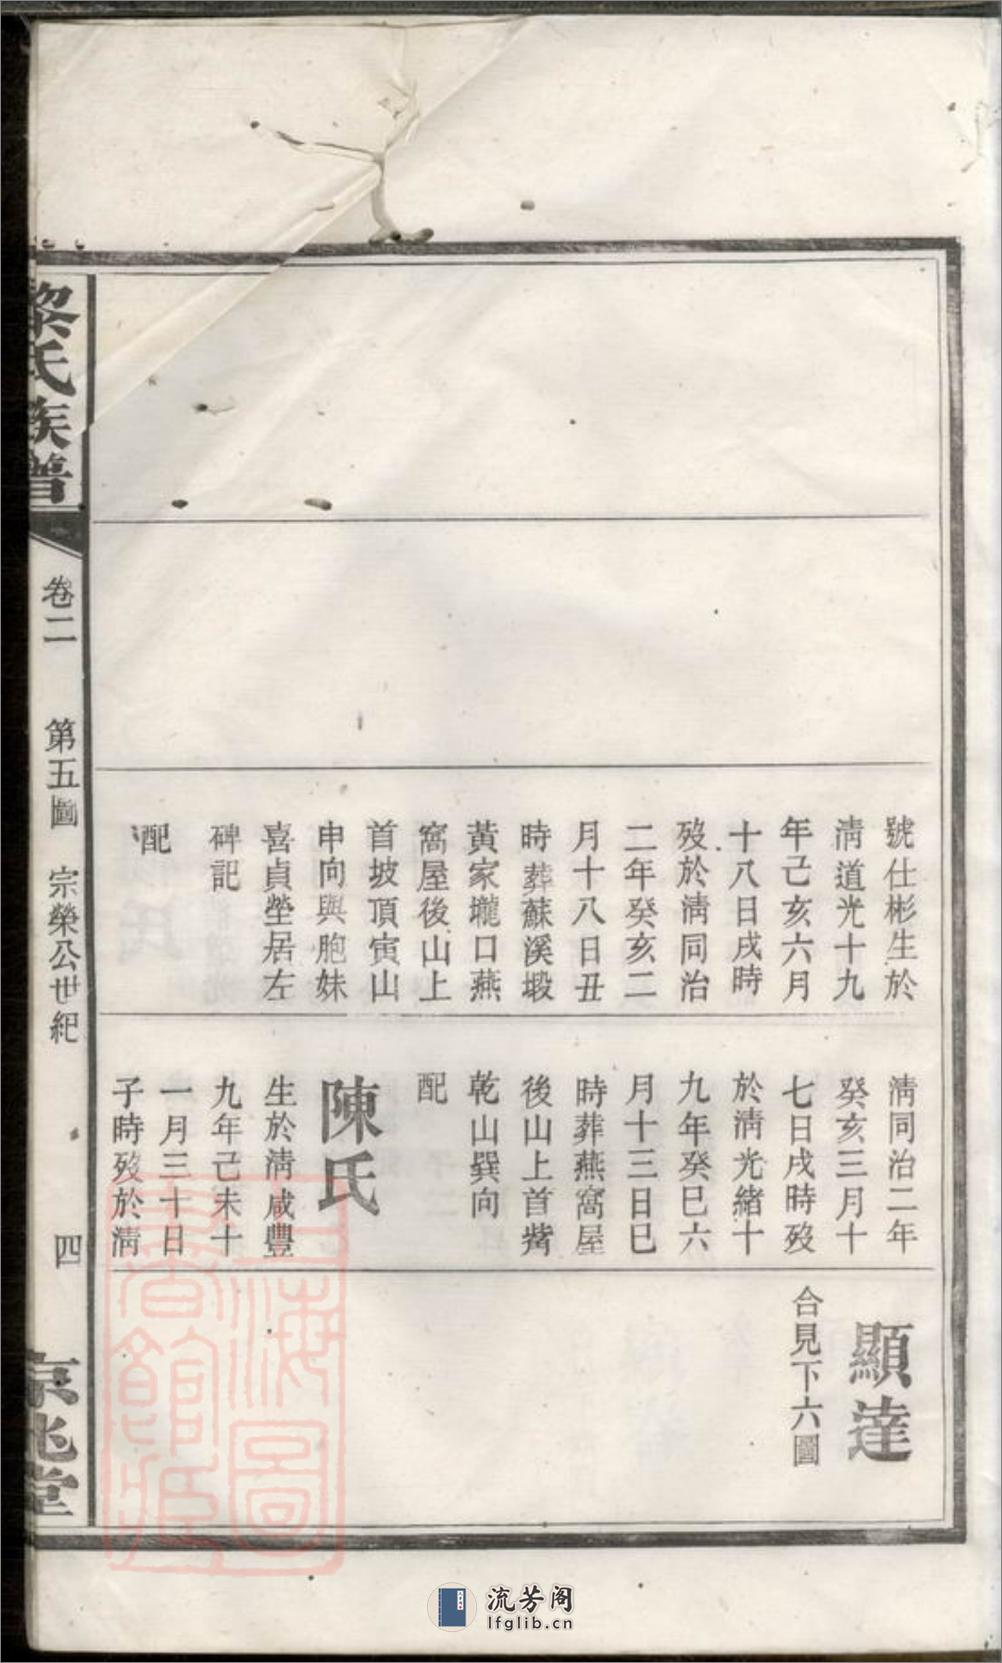 號仕彬生於
淸道光十九
年己亥六月
十八日戌時
歿於淸同治
二年癸亥二
月十八日丑
時葬蘇溪塅
黃家壠口燕
窩屋後山上
首坡頂寅山
申向與胞妹
喜貞塋居左
碑記
配
淸同治二年
癸亥三月十
七日戌時歿
於淸光緒十
九年癸巳六
月十三日巳
時葬燕窩屋
後山上首觜
乾山巽向
配
陳氏
生於淸咸豐
九年己未十
一月三十日
子時歿於淸
顯達
合見下六圖
黎氏族普
卷二 第五圖 宗榮公世紀 四
京兆堂
上海圖書館藏
流芳阁
lfglib.cn